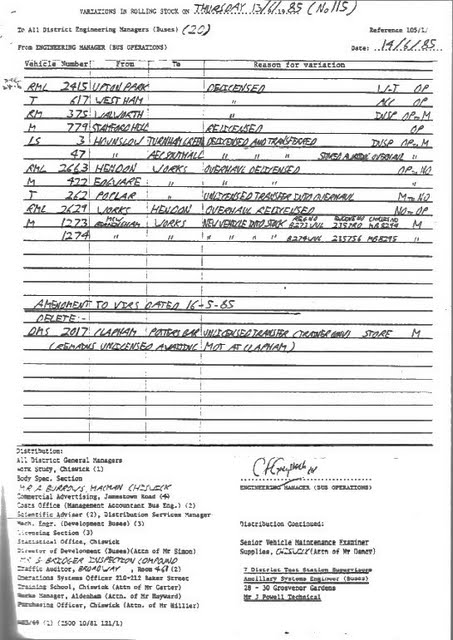 VARIATIONS IN ROLLING STOCK ON THURSDAY 13/6/1985 (No 115)
To All District Engineering Managers (Buses) (20) Reference 105/1/
From ENGINEERING MANAGER (BUS OPERATIONS) Date: 14/6/85
Vehicle Number From To Reason for variation
RML 2415 UPTON PARK DELICENSED U-T OP
T 617 WEST HAM " ACC OP
RM 375 WALWORTH " DISP OP-M
M 779 STAMFORD HILL RELICENSED OP
LS 3 HOUNSLOW TURNHAM GREEN DELICENSED AND TRANSFERRED DISP OP-M
47 " AEC SOUTHALL " " " STORED AWAITING OVERHAUL "
RML 2663 HENDON WORKS OVERHAUL DELICENSED OP-NO
M 422 EDGWARE " " " "
T 262 POPLAR " UNLICENSED TRANSFER INTO OVERHAUL M-NO
RML 2629 WORKS HENDON OVERHAUL RELICENSED NO-OP
M 1273 MCW WORKS NEW VEHICLE INTO STOCK REG NO CHASSIS NO
1274 " " " " " "
AMENDMENT TO VIRS DATED 16-5-85
DELETE:-
DMS 2017 CLAPHAM POTTERS BAR UNLICENSED TRANSFER (TRAINER) STORE M
(REMAINS UNLICENSED AWAITING MOT AT CLAPHAM)
Distribution:
All District General Managers
Work Study, Chiswick (1)
Body Spec. Section
MR A BURROWS, CHISWICK
ENGINEERING MANAGER (BUS OPERATIONS)
Commercial Advertising, Jamestown Road (4)
Costs Office (Management Accountant Bus Eng.) (2)
Scientific Adviser (2), Distribution Services Manager
Mech. Engr. (Development Buses) (3) Distribution Continued:
Licensing Section (3)
Statistical Office, Chiswick Senior Vehicle Maintenance Examiner
Director of Development (Buses)(Attn of Mr Simon) Supplies, CHISWICK (Attn of Mr Dancy)
MR S BRIDGER INSPECTION COMPOUND
Traffic Auditor, BROADWAY, Room 468 (2) 7 District Test Station Supervisors
Operations Systems Officer 210-212 Baker Street Ancillary Systems Engineer (Buses)
Training School, Chiswick (Attn of Mr Carter) 28 - 30 Grosvenor Gardens
Works Manager, Aldenham (Attn of Mr Hayward) Mr J Powell Technical
Purchasing Officer, Chiswick (Attn. of Mr Hillier)
(1) (2500 10/81 121/1)